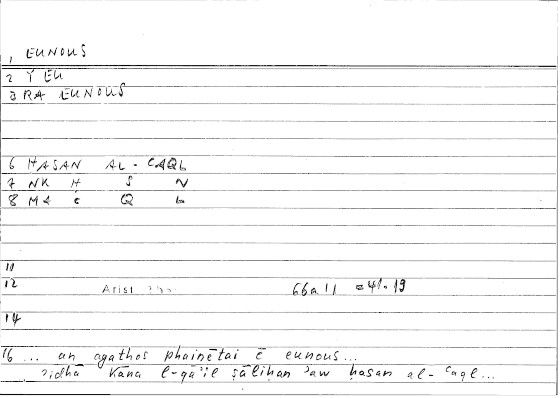 1 EUNOUS
2 Y EU
3 RA EUNOUS
6 HASAN AL-CAQL
7 NK Ḥ S N
8 MA c Q L
11
12 Arist 66a11 =41.19
14
16 ... an agathos phainētai ē eunous...
ʾidhā kāna l-qāʾil ṣāliḥan ʾaw ḥasan al-ʿaql...